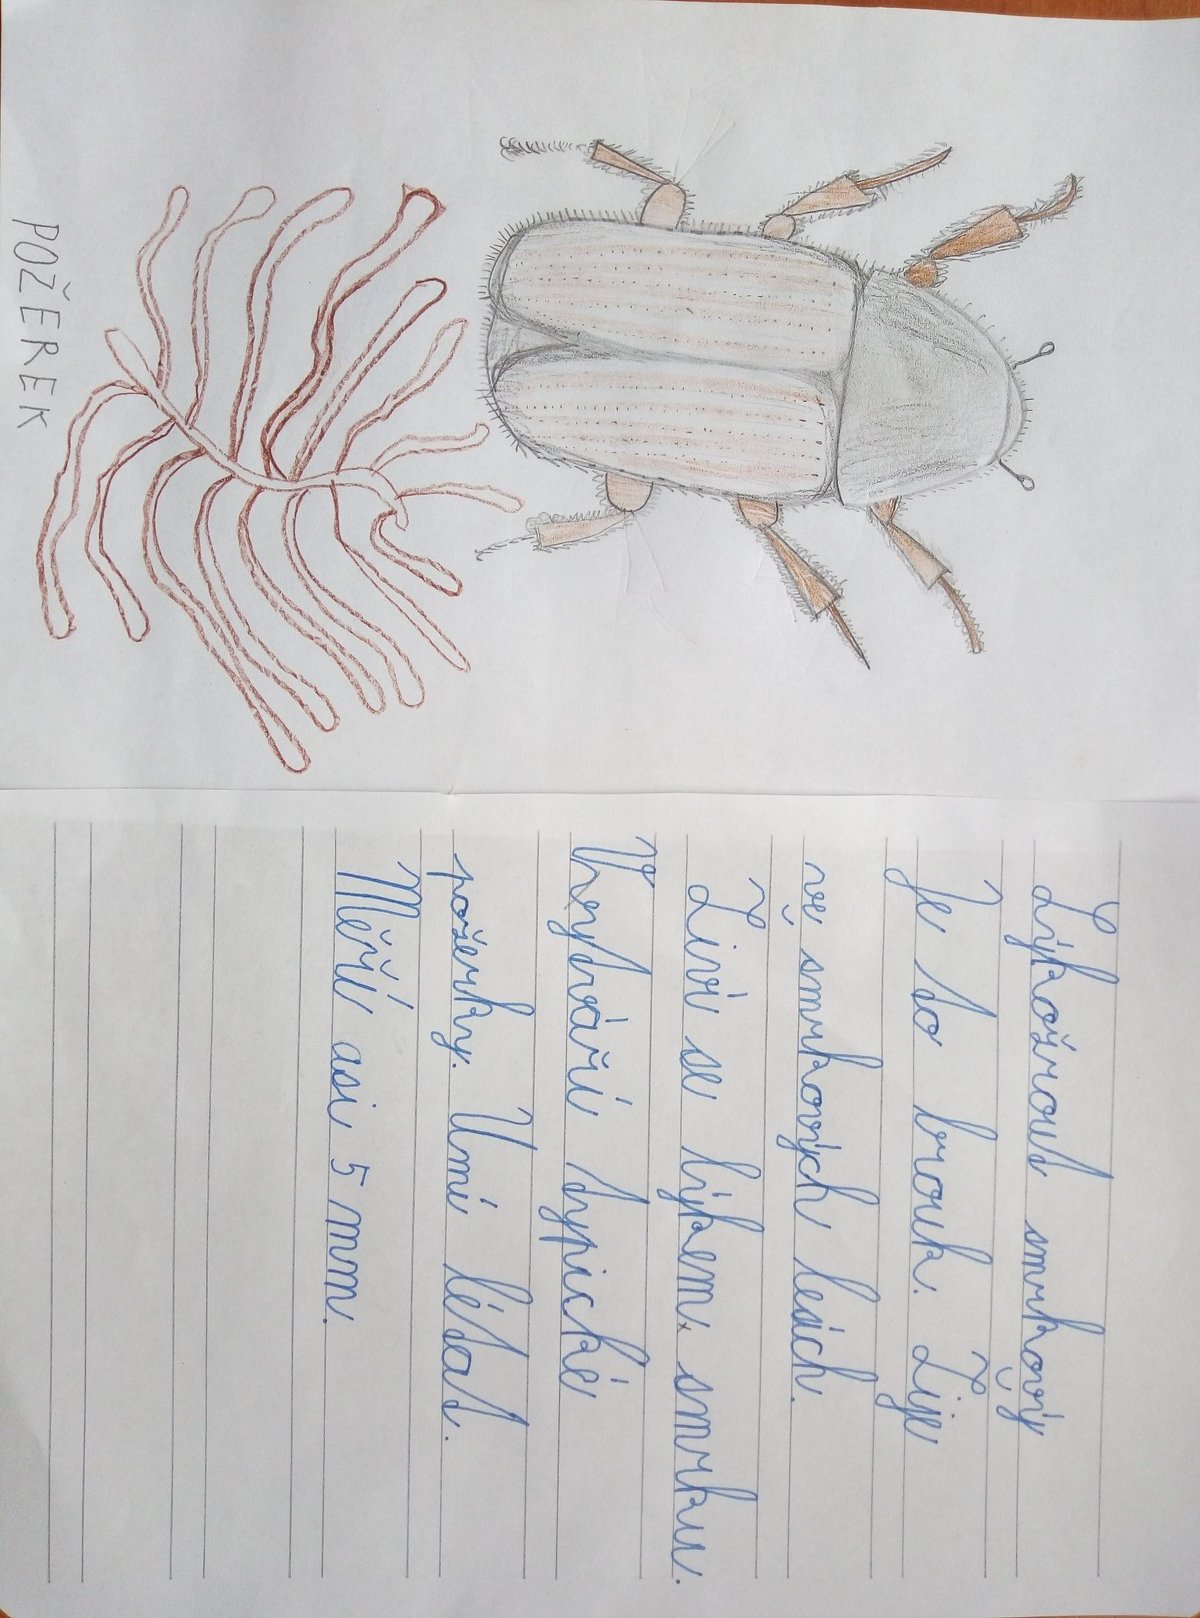 POŽEREK
Lýkožrout smrkový
Je to brouk. Žije
ve smrkových lesích.
Živí se lýkem smrku.
Vytváří typické
požerky. Umí létat.
Měří asi 5 mm.